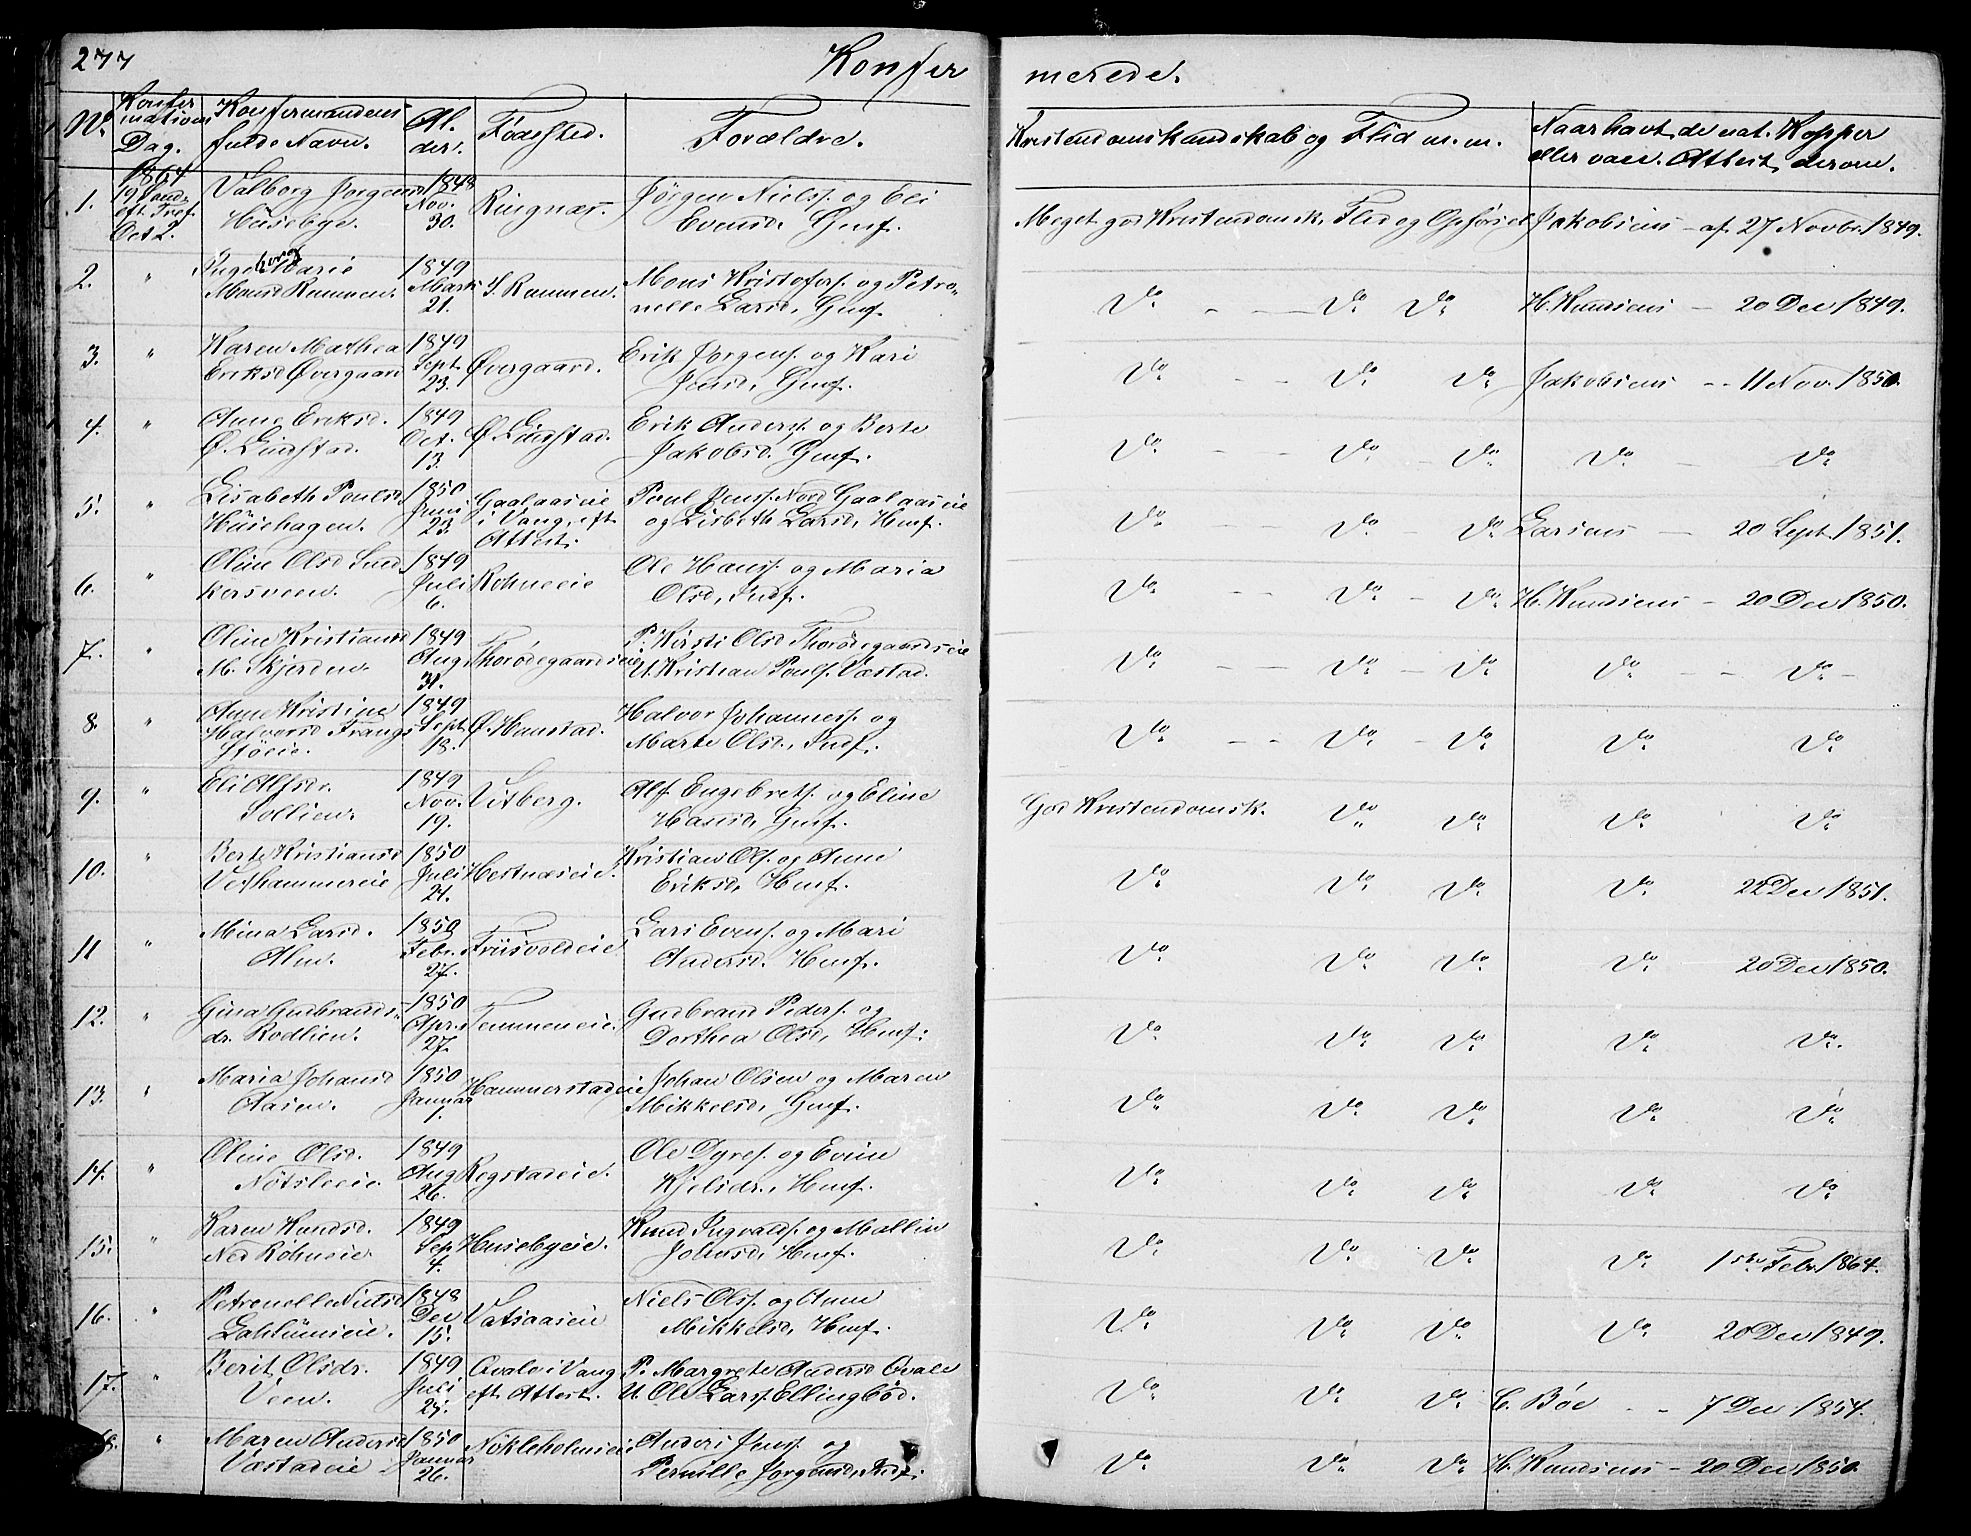 277
Konfir
merede.
No
Konfir
mations
Dag.
Konfirmandens
fulde Navn.
Al-
der.
Fødested.
Forældre.
Kristendomskundskab og Flid m.m.
Naar havt de nat. Kopper
eller vacc. Attest derom.
1864
1.
19 Sønd.
eft. Tref.
Oct 2.
Valborg Jørgensd
Husebye.
1848
Nov.
30.
Ringnæs.
Jørgen Nielss. og Eli
Evensd. Gmf.
Meget god Kristendomsk. Flid og Opførsel
Jakobsens - af 27 Novbr. 1849.
2.
"
Ingeborg Marie
Monsd Rammen.
1849
Marts
21.
S. Rammen.
Mons Kristofers. og Petro-
nelle Larsd. Gmf.
Do - - Do Do
H. Knudsens - 20 Dec 1849.
3.
"
Karen Mathea
Eriksd Øvergaard
1849
Sept.
23.
Øvergaard.
Erik Jørgens. og Kari
Jensd. Gmf.
Do - - Do Do
Jakobsens - - 11 Nov. 1850.
4.
"
Anne Eriksd.
Ø. Lindstad.
1849
Oct.
13.
Ø. Lindstad.
Erik Anders. og Berte
Jakobsd. Gmf.
Do - - Do - Do
Do - Do
5.
"
Lisabeth Poulsd
Husehagen.
1850
Juni
23.
Gaalaaseie
i Vang, eft.
Attest.
Poul Jenss. Nord Gaalaaseie
og Lisbeth Larsd. Hmf.
Do - Do - Do
Larsens - 20 Sept. 1851.
6.
"
Oline Olsd Sned
kersveen.
1849
Juli
6.
Rohneeie
Ole Hanss. og Maria
Olsd. Indf.
Do - - Do - Do
H. Knudsens - 20 Dec 1850.
7.
"
Oline Kristiansd
M. Skjerden.
1849
Aug.
31.
Thorødegaardseie
P. Kirsti Olsd Thorødegaardseie
U. Kristian Pouls. Væstad.
Do - - Do - Do
Do - - Do -
8.
"
Anne Kristine
Halvorsd Frangs
støeie.
1849
Sept.
18.
Ø. Hanstad.
Halvor Johanness. og
Marte Olsd. Indf.
Do - - Do - Do
Do Do
9.
"
Eli Alfsdr.
Sollien.
1849
Nov.
19.
Vitberg.
Alf Engebrets. og Eline
Hansd. Gmf.
God Kristendomsk. Do Do
Do Do
10.
"
Berte Kristiansd
Veshammereie
1850
Juli
21.
Hestnæseie.
Kristian Ols. og Anne
Eriksd. Hmf.
Do Do Do
Do 22 Dec 1851.
11
"
Mina Larsd.
Alm.
1850
Febr.
27.
Friisvoldeie
Lars Evens. og Mari
Andersd. Hmf.
Do Do Do
Do 20 Dec 1850.
12.
"
Gina Gudbrands-
dr. Rodlien.
1850
Apr.
27.
Temmeneie.
Gudbrand Peders. og
Dorthea Olsd. Hmf.
Do Do Do
Do Do.
13.
"
Maria Johansd
Aasen.
1850
Januar
1.
Hammerstadeie
Johan Olsen og Maren
Mikkelsd. Gmf.
Do Do Do
Do Do
14.
"
Oline Olsd.
Nøtsleeie.
1849
Aug
26.
Regstadeie.
Ole Dyres. og Evine
Kjelsdr., Hmf.
Do Do Do
Do Do
15.
"
Karen Knudsd.
Ned Rohneie.
1849
Sep.
4.
Husebyeie.
Knud Ingvalds. og Mallin
Johnsd. Hmf.
Do Do Do
Do 1ste Febr. 1864.
16.
"
Petronelle Nielsd
Lahlumseie.
1848
Dec
15.
Vatsaaseie
Niels Ols. og Anne
Mikkelsd. Hmf.
Do Do Do
Do 20 Dec 1849.
17.
"
Berit Olsdr.
Veen.
1849
Juli
Qvale i Vang
eft. Attest.
P. Margrete Andersd Qvale
U. Ole Larss. Ellingbød.
Do Do Do
C. Bøe - - 7 Dec 1854.
18.
"
Maren Andersd
Væstadeie
1850
Januar
26.
Nøkleholmseie
Anders Jenss. og
Pernille Jørgensd. Indf.
Do Do Do
H. Knudsens - 20 Dec 1850.